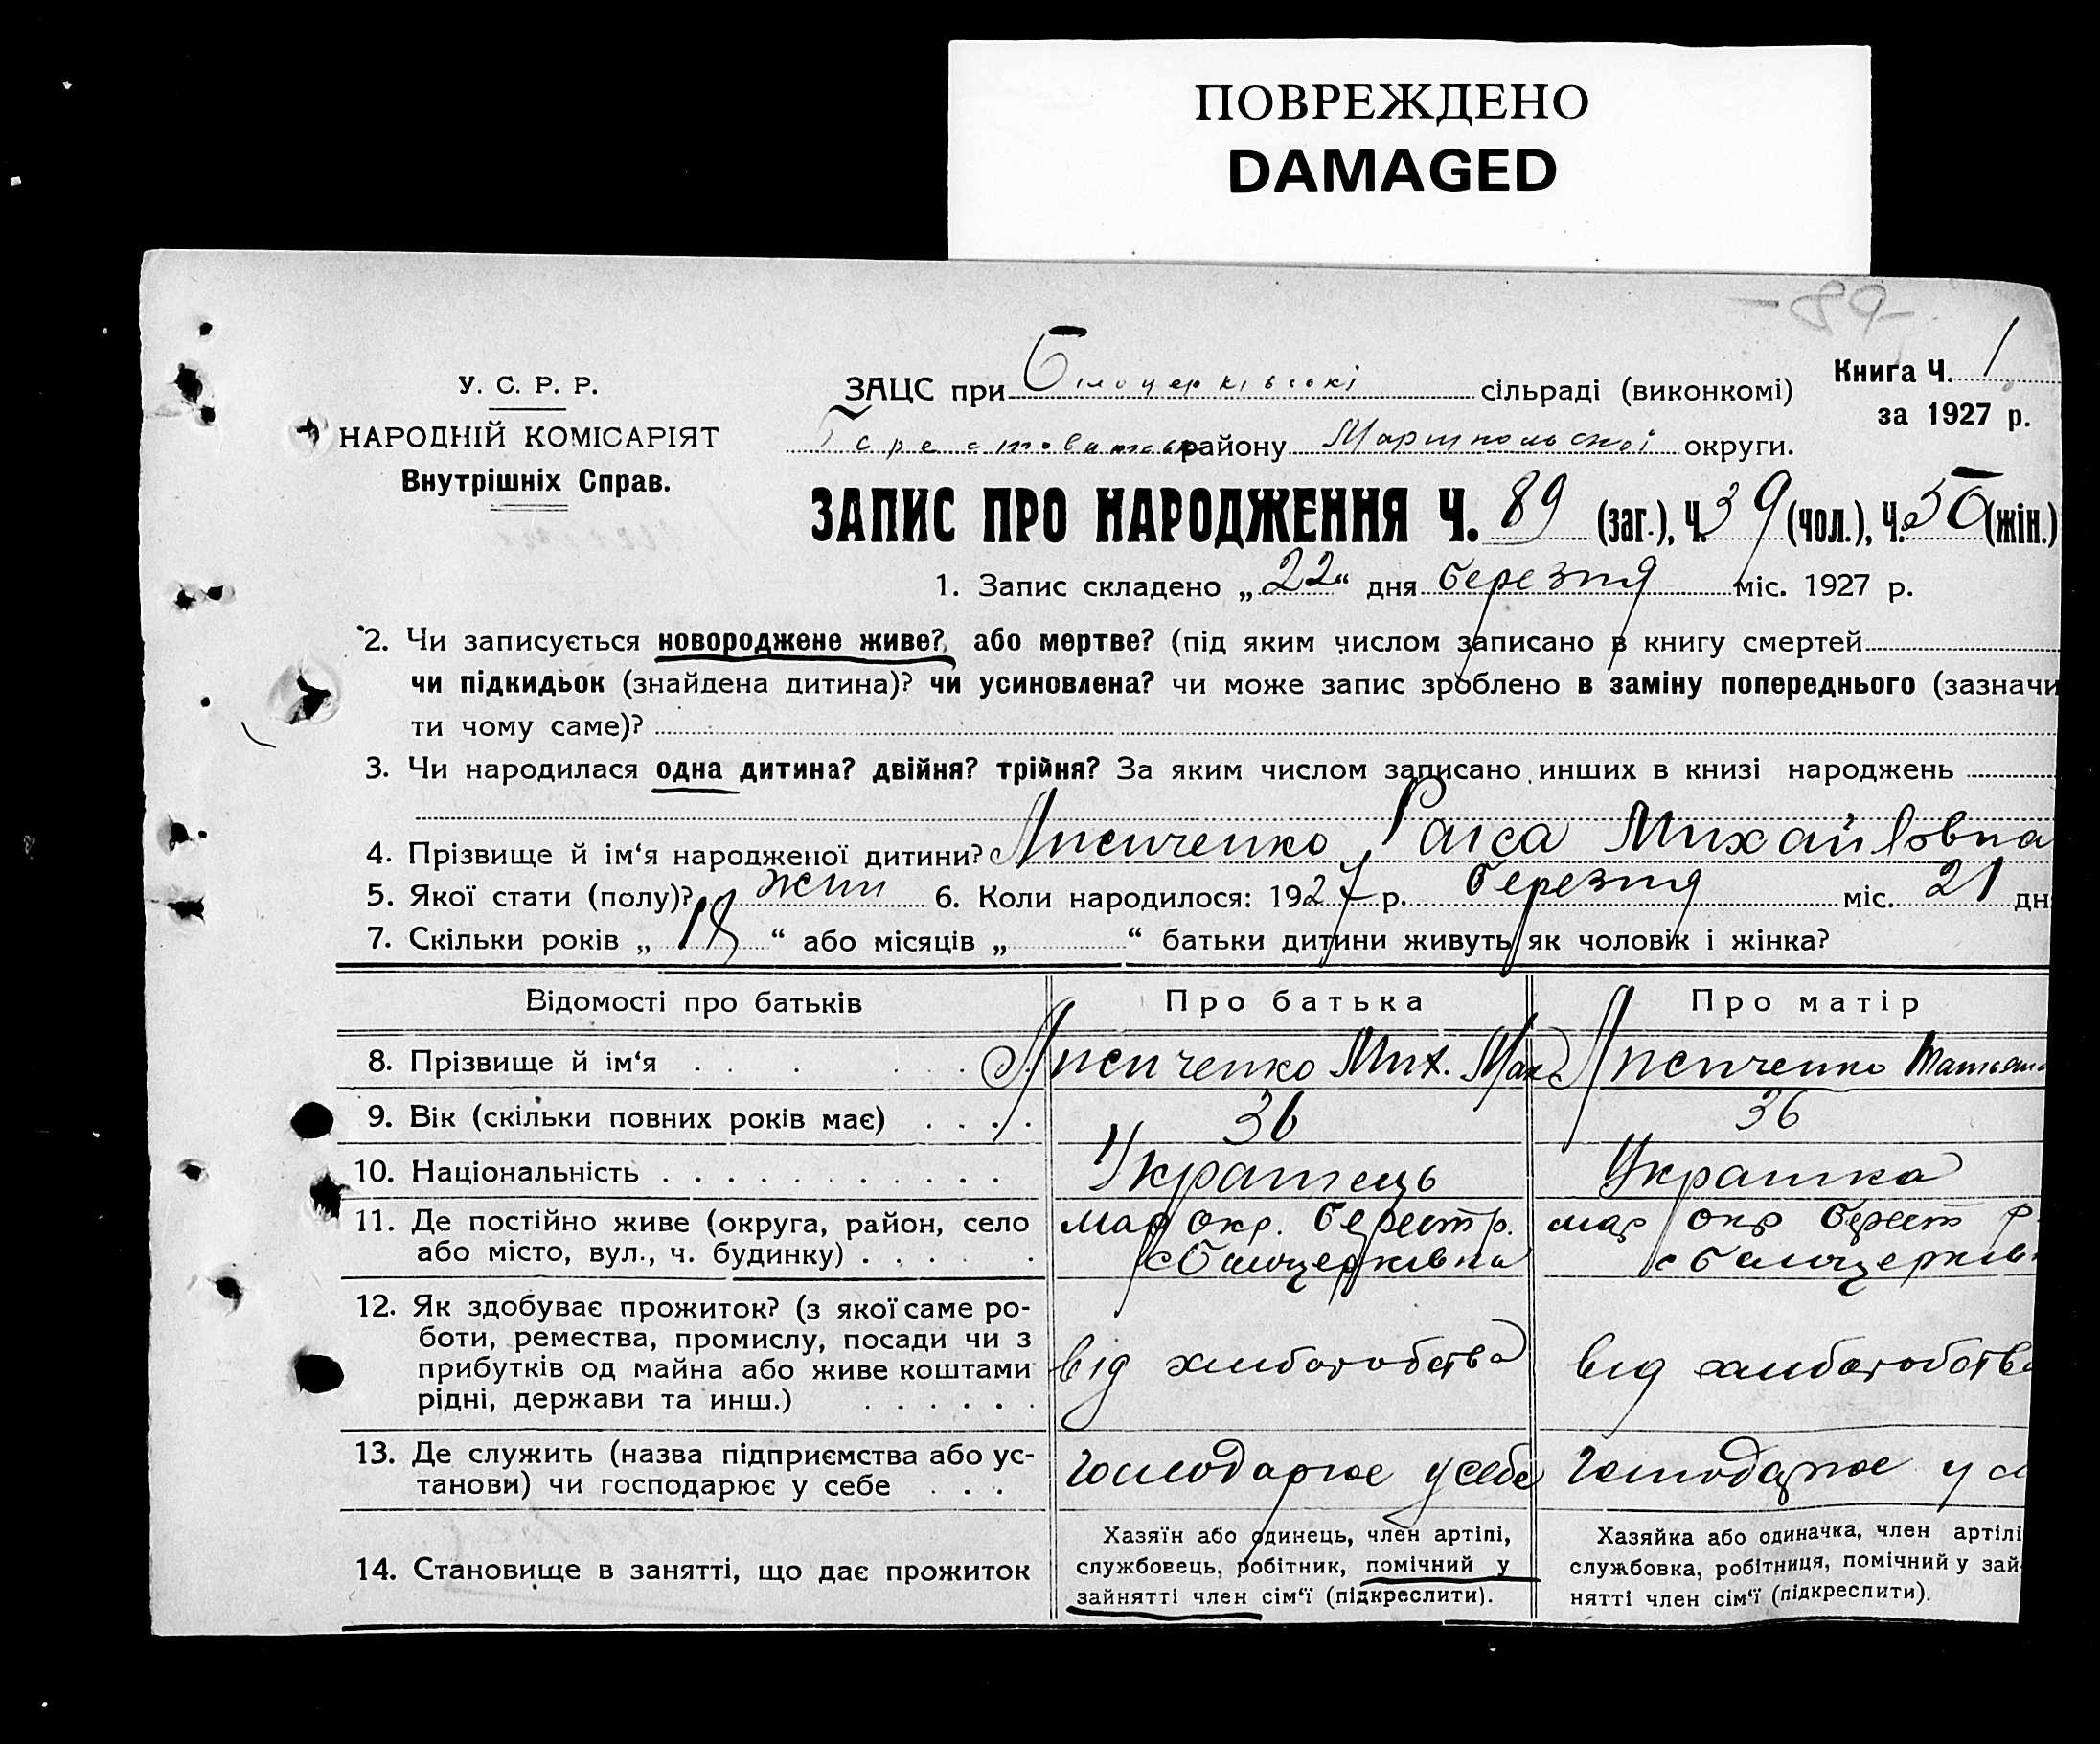 ПОВРЕЖДЕНО
DAMAGED
-89-
У. С. Р. Р.
НАРОДНІЙ КОМІСАРІЯТ
Внутрішніх Справ.
ЗАЦС при Білоцерківські сільраді (виконкомі)
району Маріупольської округи.
Книга Ч. 1
за 1927 р.
ЗАПИС ПРО НАРОДЖЕННЯ Ч. 89 (заг.), Ч. 39 (чол.), Ч. 50 (жін.)
1. Запис складено „22“ дня березня міс. 1927 р.
2. Чи записується новороджене живе? або мертве? (під яким числом записано в книгу смертей
чи підкидьок (знайдена дитина)? чи усиновлена? чи може запис зроблено в заміну попереднього (зазначи
ти чому саме)?
3. Чи народилася одна дитина? двійня? трійня? За яким числом записано инших в книзі народжень
4. Прізвище й ім‘я народженої дитини? Лисиченко Раіса Михайловна
5. Якої стати (полу)? жін 6. Коли народилося: 1927 р. березня міс. 21 дн
7. Скільки років „18“ або місяців „ “ батьки дитини живуть як чоловік і жінка?
Відомості про батьків Про батька Про матір
8. Прізвище й ім‘я Лисиченко Мих. Мак Лисиченко Татьяна
9. Вік (скільки повних років має) 36 36
10. Національність Українець Українка
11. Де постійно живе (округа, район, село мар окр. Берест р. мар окр Берест р
або місто, вул., ч. будинку) с Білоцерківка с Білоцерків
12. Як здобуває прожиток? (з якої саме ро-
боти, ремества, промислу, посади чи з
прибутків од майна або живе коштами від хліборобства від хліборобства
рідні, держави та инш.)
13. Де служить (назва підприємства або ус-
танови) чи господарює у себе господарює у себе господарює у се
14. Становище в занятті, що дає прожиток
Хазяїн або одинець, член артілі,
службовець, робітник, помічний у
зайнятті член сім‘ї (підкреслити).
Хазяйка або одиначка, член артілі
службовка, робітниця, помічний у зай-
нятті член сім‘ї (підкреслити).